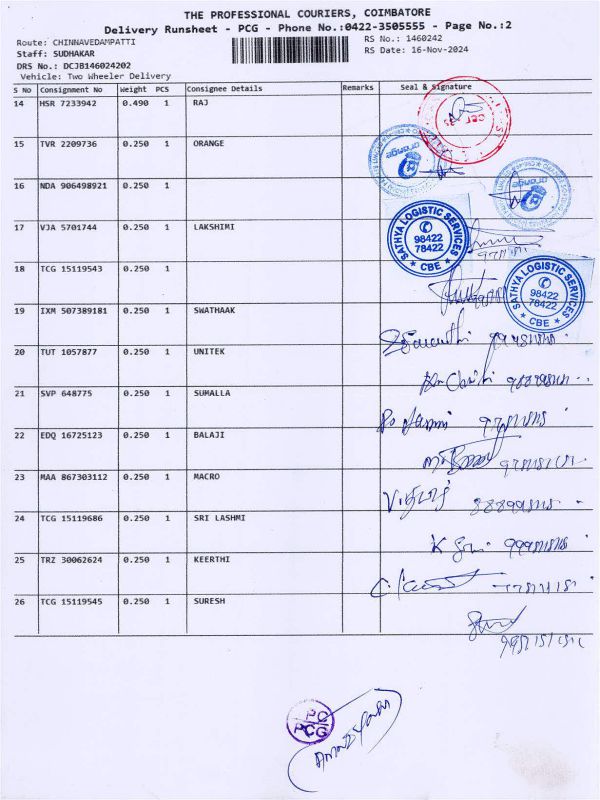 THE PROFESSIONAL COURIERS, COIMBATORE
Delivery Runsheet - PCG - Phone No.:0422-3505555 - Page No.:2
Route: CHINNAVEDAMPATTI RS No.: 1460242
Staff: SUDHAKAR RS Date: 16-Nov-2024
DRS No.: DCJB146024202
Vehicle: Two Wheeler Delivery
S No Consignment No Weight PCS Consignee Details Remarks Seal & Signature
14 HSR 7233942 0.490 1 RAJ
15 TVR 2209736 0.250 1 ORANGE
orange
16 NDA 906498921 0.250 1
orange
17 VJA 5701744 0.250 1 LAKSHIMI
SATHYA LOGISTIC SERVICES
98422
78422
CBE
18 TCG 15119543 0.250 1
SATHYA LOGISTIC SERVICES
98422
78422
CBE
19 IXM 507389181 0.250 1 SWATHAAK
20 TUT 1057877 0.250 1 UNITEK
21 SVP 648775 0.250 1 SUMALLA
22 EDQ 16725123 0.250 1 BALAJI
23 MAA 867303112 0.250 1 MACRO
24 TCG 15119686 0.250 1 SRI LASHMI
25 TRZ 30062624 0.250 1 KEERTHI
26 TCG 15119545 0.250 1 SURESH
PC
PCG